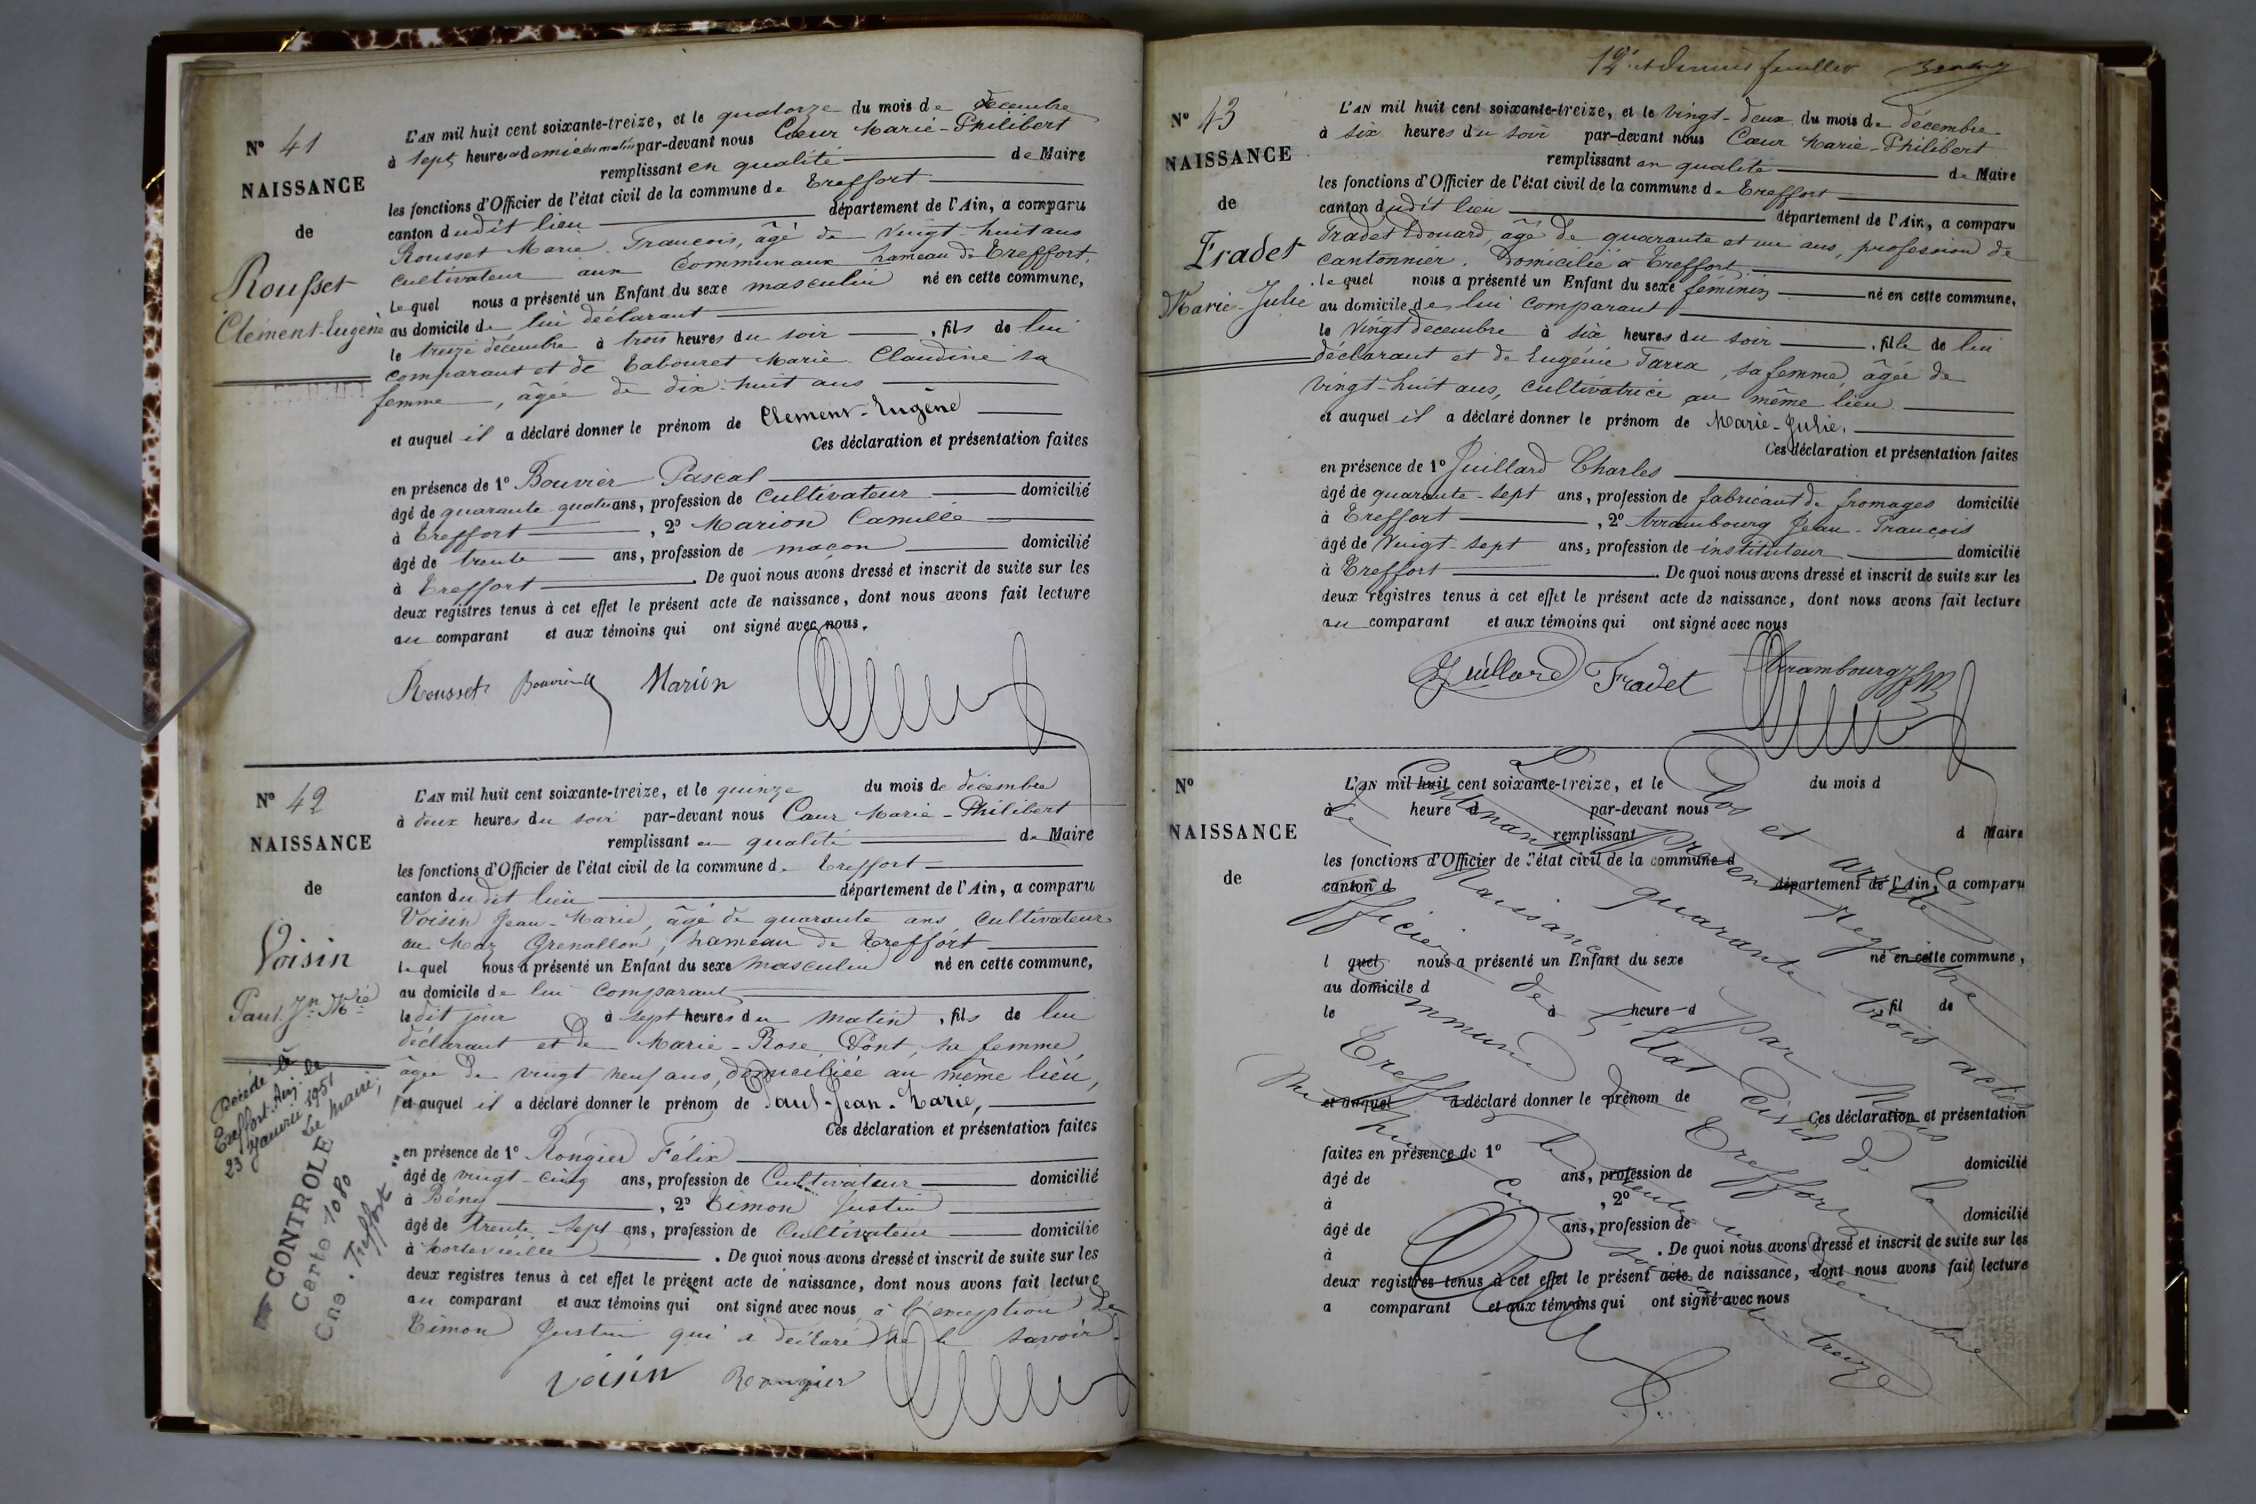 N° 41
NAISSANCE
de
Rousset
Clément-Eugène
L'AN mil huit cent soixante-treize, et le quatorze du mois de décembre
à sept heures et demie du matin par-devant nous Cœur Marie-Philibert
remplissant en qualité de Maire
les fonctions d'Officier de l'état civil de la commune de Treffort
canton dudit lieu département de l'Ain, a comparu
Rousset Marie François, âgé de vingt huit ans
cultivateur aux Communaux hameau de Treffort,
lequel nous a présenté un Enfant du sexe masculin né en cette commune,
au domicile de lui déclarant
le treize décembre à trois heures du soir, fils de lui
comparant et de Tabouret Marie Claudine sa
femme, âgée de dix-huit ans
et auquel il a déclaré donner le prénom de Clément-Eugène
Ces déclaration et présentation faites
en présence de 1° Bouvier Pascal
âgé de quarante quatre ans, profession de cultivateur domicilié
à Treffort, 2° Marion Camille
âgé de trente ans, profession de maçon domicilié
à Treffort. De quoi nous avons dressé et inscrit de suite sur les
deux registres tenus à cet effet le présent acte de naissance, dont nous avons fait lecture
au comparant et aux témoins qui ont signé avec nous.
Rousset Bouvier Marion
N° 42
NAISSANCE
de
Voisin
Paul Jn Mie
Décédé à
Treffort Ain le
23 Janvier 1951
Le Maire,
CONTROLE
Carte 1080
Cne. Treffort
L'AN mil huit cent soixante-treize, et le quinze du mois de décembre
à deux heures du soir par-devant nous Cœur Marie-Philibert
remplissant en qualité de Maire
les fonctions d'Officier de l'état civil de la commune de Treffort
canton dudit lieu département de l'Ain, a comparu
Voisin Jean-Marie, âgé de quarante ans, cultivateur
au Maz Grenallon, hameau de Treffort
lequel nous a présenté un Enfant du sexe masculin né en cette commune,
au domicile de lui comparant
ledit jour à sept heures du matin, fils de lui
déclarant et de Marie-Rose Pont, sa femme,
âgée de vingt neuf ans, domiciliée au même lieu,
et auquel il a déclaré donner le prénom de Paul-Jean-Marie,
Ces déclaration et présentation faites
en présence de 1° Rongier Félix
âgé de vingt-cinq ans, profession de Cultivateur domicilié
à Bény, 2° Timon Justin
âgé de trente-sept ans, profession de Cultivateur domicilié
à Montevieille. De quoi nous avons dressé et inscrit de suite sur les
deux registres tenus à cet effet le présent acte de naissance, dont nous avons fait lecture
au comparant et aux témoins qui ont signé avec nous à l'exception de
Timon Justin qui a déclaré ne le savoir
Voisin Rongier
12e et dernier feuillet
N° 43
NAISSANCE
de
Fradet
Marie-Julie
L'AN mil huit cent soixante-treize, et le vingt-deux du mois de décembre
à six heures du soir par-devant nous Cœur Marie-Philibert
remplissant en qualité de Maire
les fonctions d'Officier de l'état civil de la commune de Treffort
canton dudit lieu département de l'Ain, a comparu
Fradet Edouard, âgé de quarante et un ans, profession de
cantonnier, Domicilié à Treffort
lequel nous a présenté un Enfant du sexe féminin né en cette commune,
au domicile de lui comparant
le vingt décembre à six heures du soir, fille de lui
déclarant et de Eugénie Farra, sa femme, âgée de
vingt-huit ans, cultivatrice au même lieu
et auquel il a déclaré donner le prénom de Marie-Julie,
Ces déclaration et présentation faites
en présence de 1° Juillard Charles
âgé de quarante-sept ans, profession de fabricant de fromages domicilié
à Treffort, 2° Arrambourg Jean-François
âgé de vingt-sept ans, profession de instituteur domicilié
à Treffort. De quoi nous avons dressé et inscrit de suite sur les
deux registres tenus à cet effet le présent acte de naissance, dont nous avons fait lecture
au comparant et aux témoins qui ont signé avec nous
Juillard Fradet Arrambourg
N°
NAISSANCE
de
L'AN mil huit cent soixante-treize, et le du mois d
à heure d par-devant nous
remplissant d Maire
les fonctions d'Officier de l'état civil de la commune d
canton d département de l'Ain, a comparu
l quel nous a présenté un Enfant du sexe né en cette commune,
au domicile d
le à heure d fil de
et auquel a déclaré donner le prénom de
Ces déclaration et présentation
faites en présence de 1°
âgé de ans, profession de domicilié
à , 2°
âgé de ans, profession de domicilié
à . De quoi nous avons dressé et inscrit de suite sur les
deux registres tenus à cet effet le présent acte de naissance, dont nous avons fait lecture
a comparant et aux témoins qui ont signé avec nous
Clos et arrêté
le présent Registre
Contenant quarante trois actes
de Naissance par Nous
Officier de l'Etat Civil de la
Commune de Treffort
Treffort le trente un décembre
Mil huit cent soixante-treize